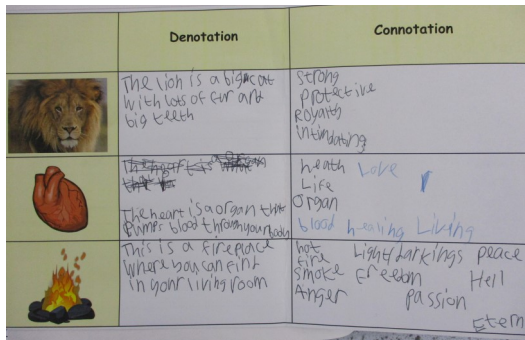 Denotation
Connotation
The lion is a big cat
with lots of fur and
big teeth
Strong
Protective
Royalty
intimidating
The heart is a organ that
pumps blood through your body
heath Love
Life
Organ
blood healing Living
This is a fireplace
where you can find
in your living room
hot Light/darkings peace
fire
smoke Freedom Hell
Anger passion